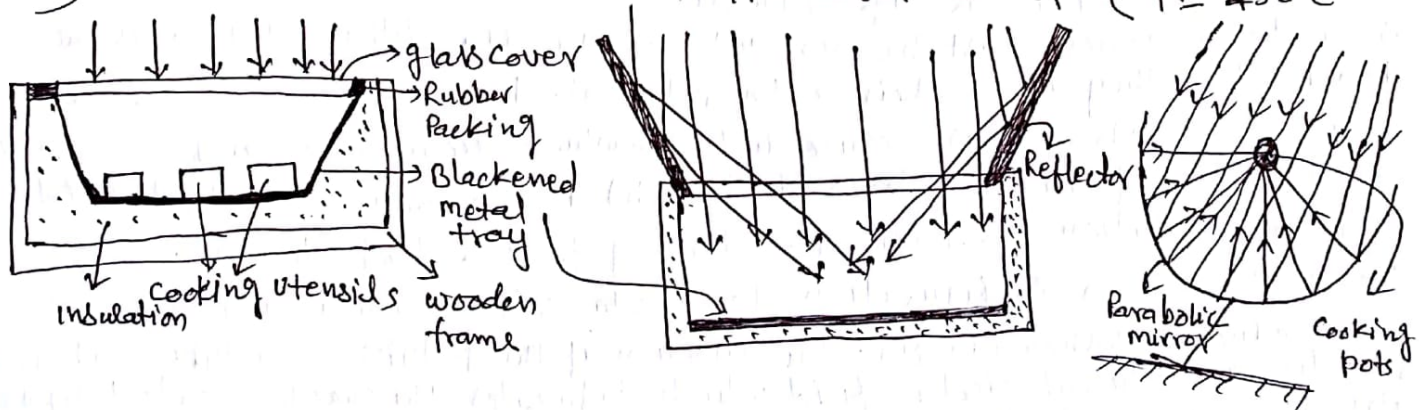 (T = 450°C
glass cover
Rubber
Packing
Blackened
metal
tray
Insulation
Cooking Utensids
wooden
frame
Reflector
Parabolic
mirror
Cooking
pots